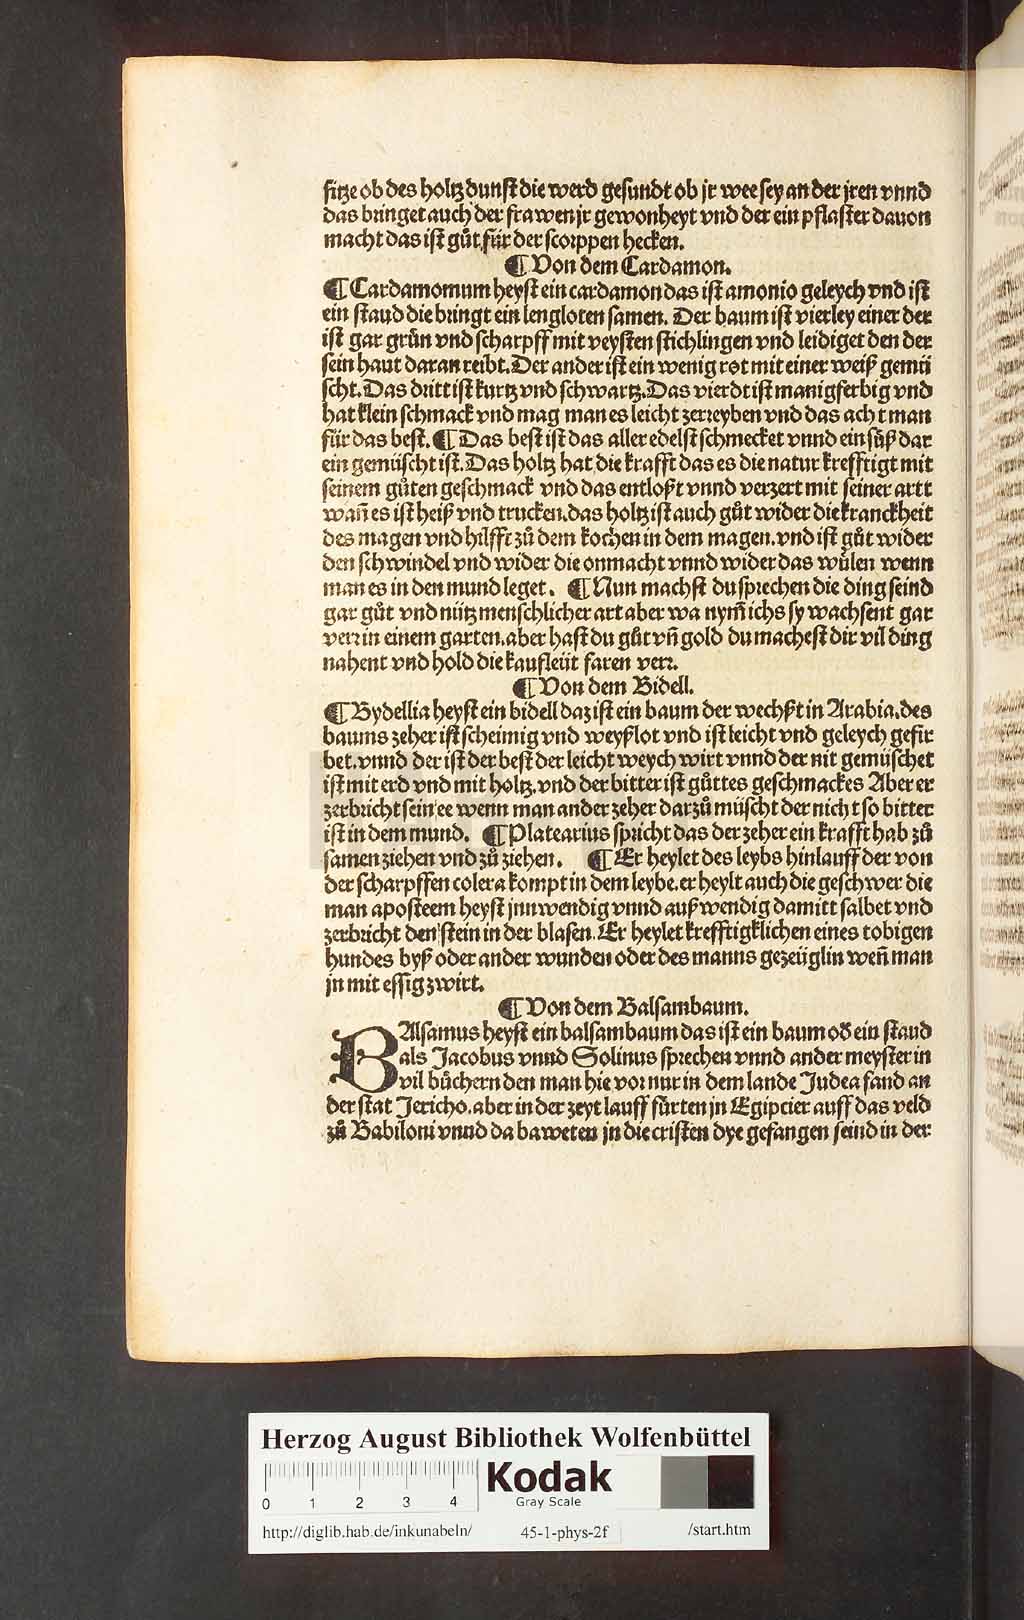 sitze ob des holtz dunst die werd gesundt ob jr wee sey an der jren vnnd
das bringet auch der frawen jr gewonheyt vnd der ein pflaster dauon
macht das ist gůt für der scorppen hecken.
¶ Von dem Cardamon.
¶ Cardamomum heyst ein cardamon das ist amonio geleych vnd ist
ein staud die bringt ein lengloten samen. Der baum ist vierley einer der
ist gar grün vnd scharpff mit veysten stichlingen vnd leidiget den der
sein haut daran reibt. Der ander ist ein wenig rot mit einer weiß gemü
scht. Das dritt ist kurtz vnd schwartz. Das vierdt ist manigferbig vnd
hat klein schmack vnd mag man es leicht zerreyben vnd das acht man
für das best. ¶ Das best ist das aller edelst schmecket vnnd ein süß dar
ein gemüscht ist. Das holtz hat die krafft das es die natur krefftigt mit
seinem gůten geschmack vnd das entloßt vnnd verzert mit seiner artt
wañ es ist heiß vnd trucken. das holtz ist auch gůt wider die kranckheit
des magen vnd hilfft zů dem kochen in dem magen. vnd ist gůt wider
den schwindel vnd wider die onmacht vnnd wider das wůlen wenn
man es in den mund leget. ¶ Nun machst du sprechen die ding seind
gar gůt vnd nütz menschlicher art aber wa nym̃ ichs sy wachsent gar
verr in einem garten. aber hast du gůt vñ gold du machest dir vil ding
nahent vnd hold die kaufleüt faren verr.
¶ Von dem Bidell.
¶ Bydellia heyst ein bidell daz ist ein baum der wechßt in Arabia. des
baums zeher ist scheimig vnd weyßlot vnd ist leicht vnd geleych gefir
bet. vnnd der ist der best der leicht weych wirt vnnd der nit gemüschet
ist mit erd vnd mit holtz. vnd der bitter ist gůttes geschmackes Aber er
zerbricht sein ee wenn man ander zeher darzů müscht der nicht so bitter
ist in dem mund. ¶ Platearius spricht das der zeher ein krafft hab zů
samen ziehen vnd zů ziehen. ¶ Er heylet des leybs hinlauff der von
der scharpffen colera kompt in dem leybe. er heylt auch die geschwer die
man aposteem heyst jnnwendig vnnd außwendig damitt salbet vnd
zerbricht den stein in der blasen. Er heylet krefftigklichen eines tobigen
hundes byß oder ander wunden oder des manns gezeüglin weñ man
jn mit essig zwirt.
¶ Von dem Balsambaum.
BAlsamus heyst ein balsambaum das ist ein baum oð ein staud
als Jacobus vnnd Solinus sprechen vnnd ander meyster in
vil bůchern den man hie vor nur in dem lande Judea fand an
der stat Jericho. aber in der zeyt lauff fürten jn Egipcier auff das veld
zů Babiloni vnnd da baweten jn die cristen dye gefangen seind in der
Herzog August Bibliothek Wolfenbüttel
0 1 2 3 4
Kodak
Gray Scale
http://diglib.hab.de/inkunabeln/ 45-1-phys-2f /start.htm